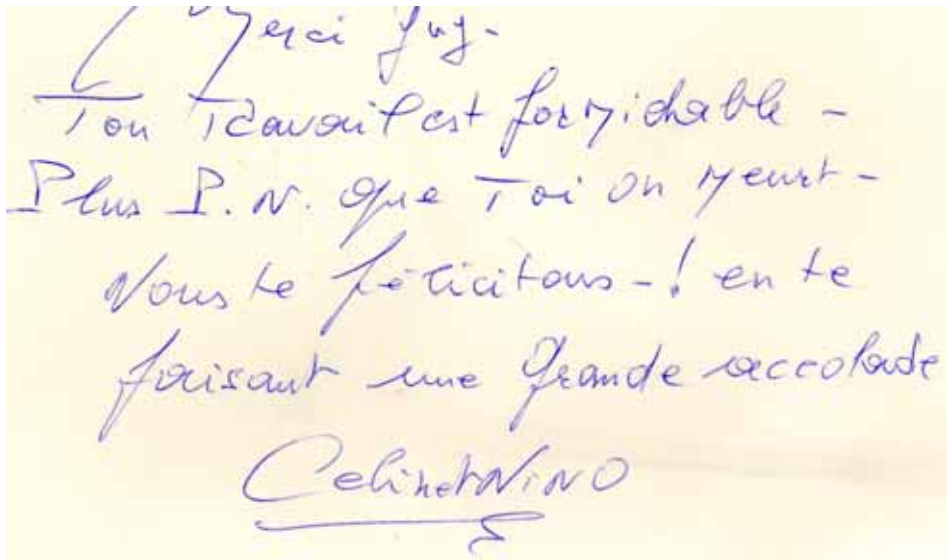 Merci Guy-
Ton Travail est formidable -
Plus P.N. que Toi on meurt -
Nous te félicitons - ! en te
faisant une grande accolade
Celine et NINO